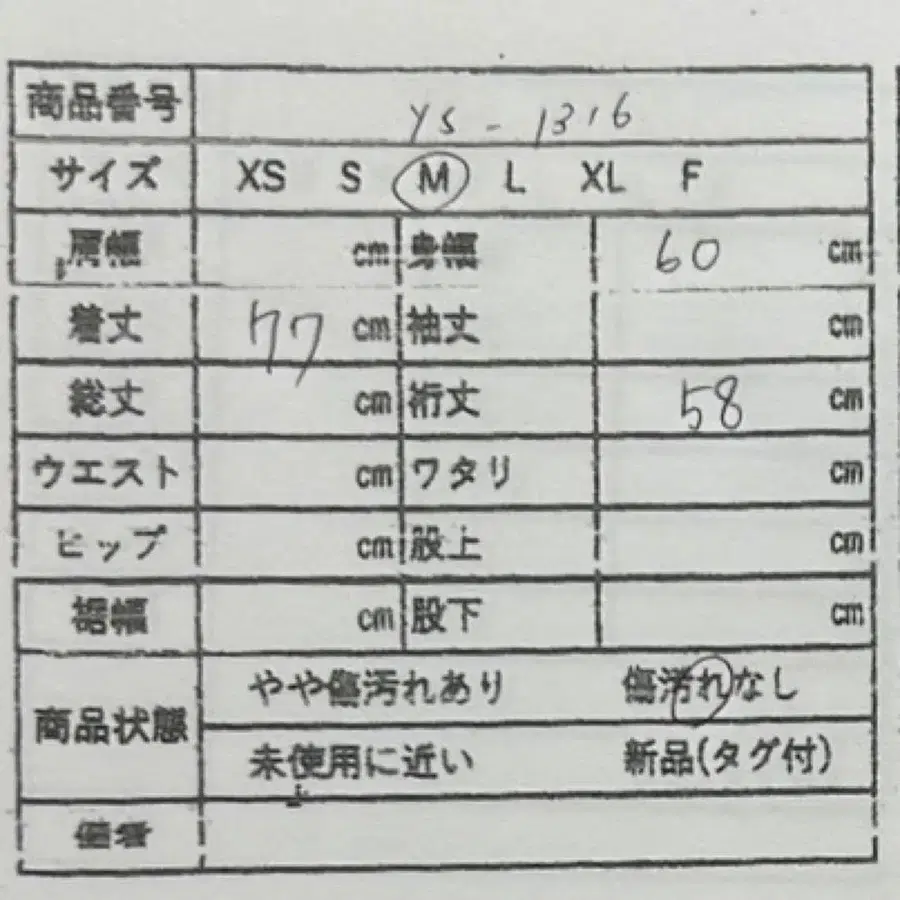 商品番号 YS-1316
サイズ XS S M L XL F
肩幅 cm 身幅 60 cm
着丈 77 cm 袖丈 cm
総丈 cm 裄丈 58 cm
ウエスト cm ワタリ cm
ヒップ cm 股上 cm
裾幅 cm 股下 cm
商品状態 やや傷汚れあり 傷汚れなし
未使用に近い 新品(タグ付)
備考